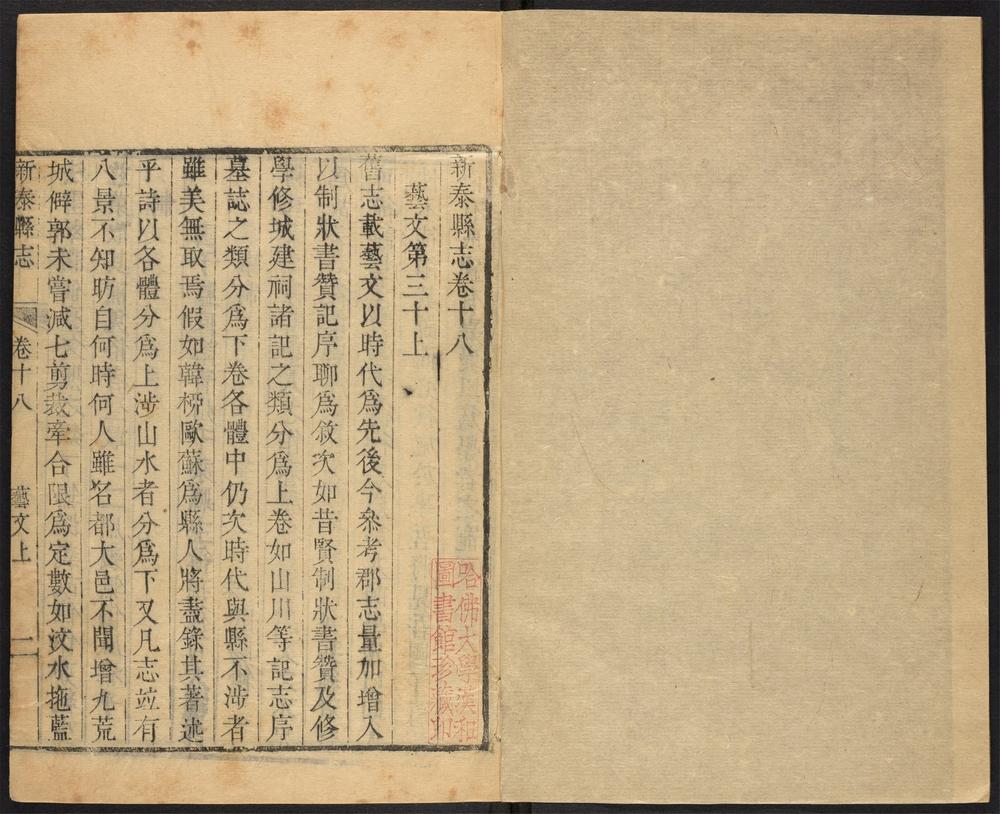 新泰縣志卷十八
藝文第三十上
舊志載藝文以時代爲先後今叅考郡志量加增入
以制狀書贊記序聊爲敘次如昔賢制狀書贊及修
學修城建祠諸記之類分爲上卷如山川等記志序
墓誌之類分爲下卷各體中仍次時代與縣不涉者
雖美無取焉假如韓桺歐蘇爲縣人將盡錄其著述
乎詩以各體分爲上涉山水者分爲下又凡志竝有
八景不知昉自何時何人雖名都大邑不聞增九荒
城僻郭未嘗減七剪裁牽合限爲定數如汶水拖藍
新泰縣志 卷十八 藝文上 一
哈佛大學漢和
圖書館珍藏印